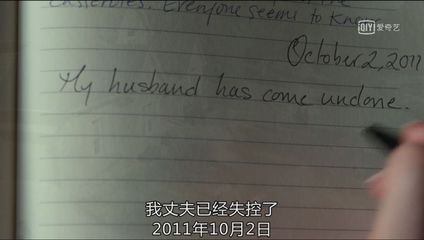 Casseroles. Everyone seems to know
iQIYI 爱奇艺
October 2, 2011
My husband has come undone.
我丈夫已经失控了
2011年10月2日